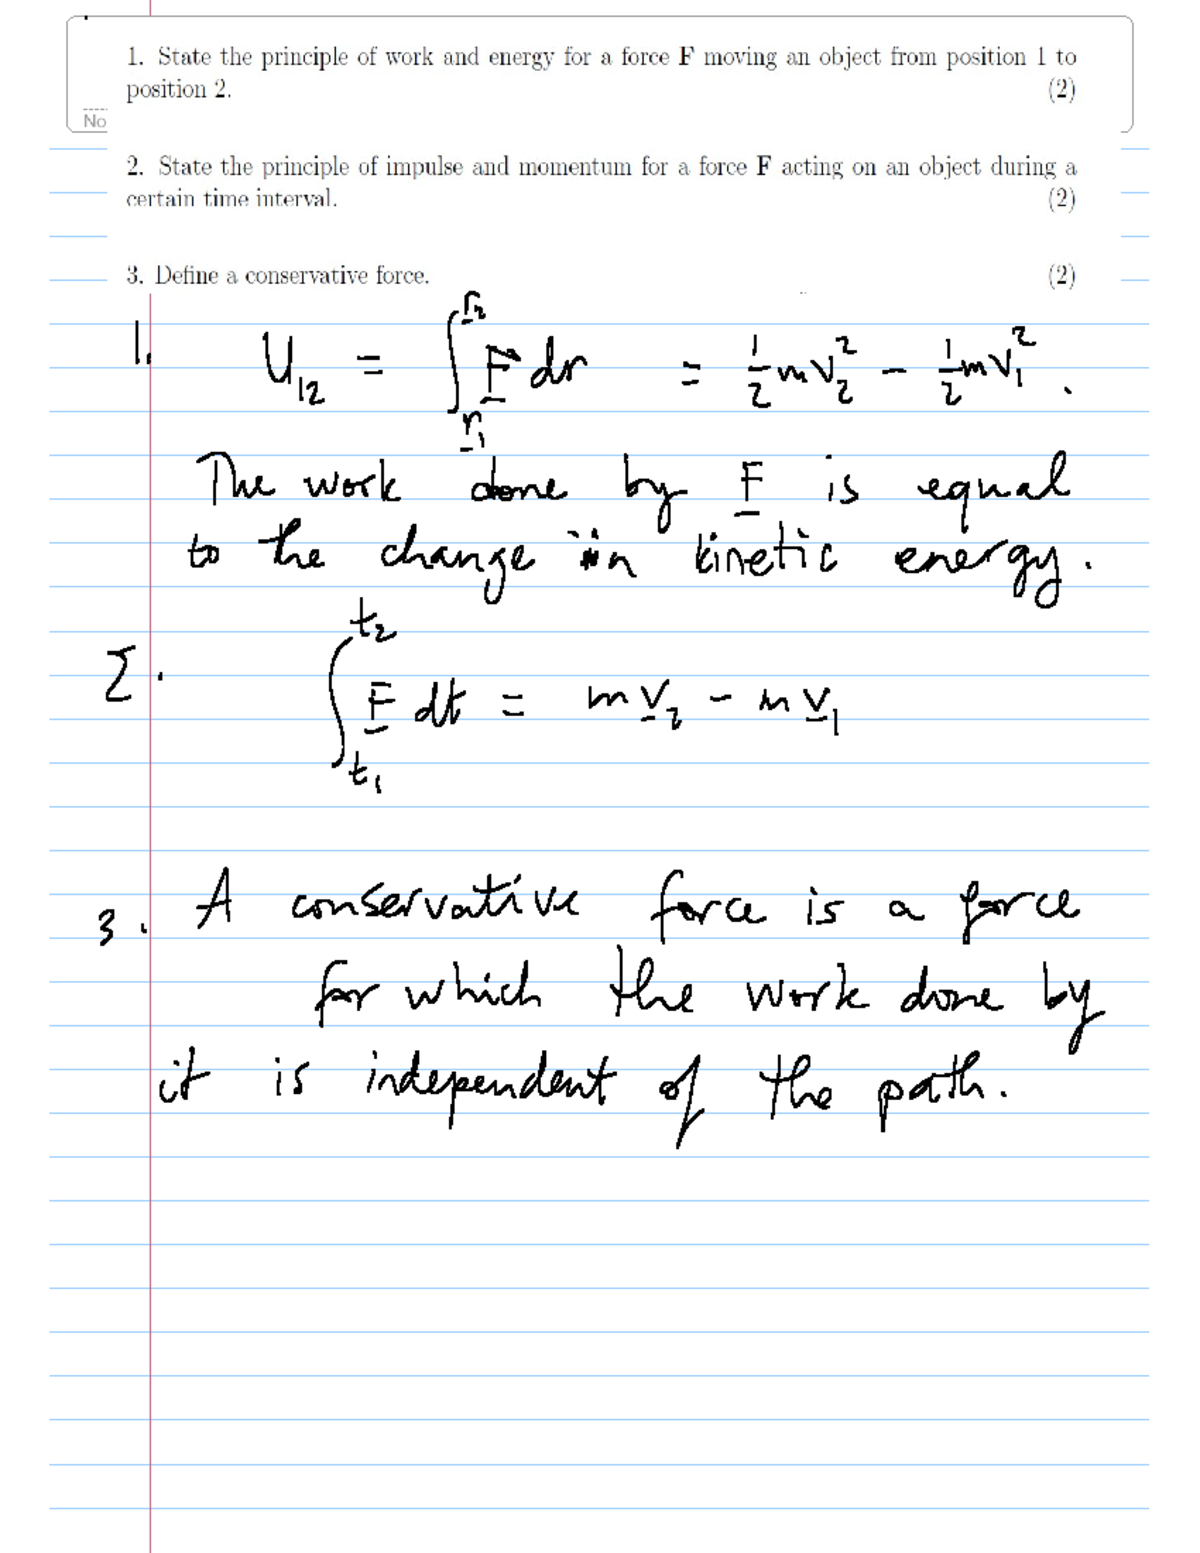 1. State the principle of work and energy for a force F moving an object from position 1 to
position 2. (2)
No
2. State the principle of impulse and momentum for a force F acting on an object during a
certain time interval. (2)
3. Define a conservative force. (2)
1. U₁₂ = ∫_{r₁}^{r₂} F dr = ½mv₂² - ½mv₁².
The work done by F is equal
to the change in kinetic energy.
2. ∫_{t₁}^{t₂} F dt = m v₂ - m v₁
3. A conservative force is a force
for which the work done by
it is independent of the path.